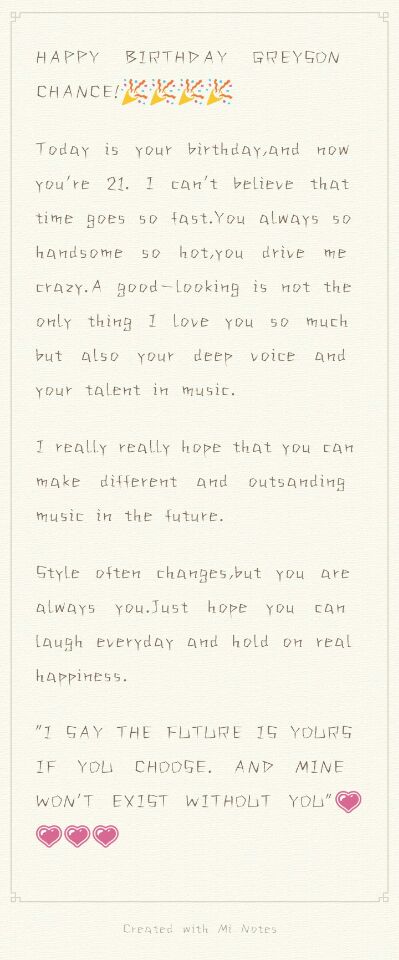 HAPPY BIRTHDAY GREYSON
CHANCE!🎉🎉🎉🎉
Today is your birthday,and now
you're 21. I can't believe that
time goes so fast.You always so
handsome so hot,you drive me
crazy.A good-looking is not the
only thing I love you so much
but also your deep voice and
your talent in music.
I really really hope that you can
make different and outsanding
music in the future.
Style often changes,but you are
always you.Just hope you can
laugh everyday and hold on real
happiness.
"I SAY THE FUTURE IS YOURS
IF YOU CHOOSE. AND MINE
WON'T EXIST WITHOUT YOU"💗
💗💗💗
Created with Mi Notes